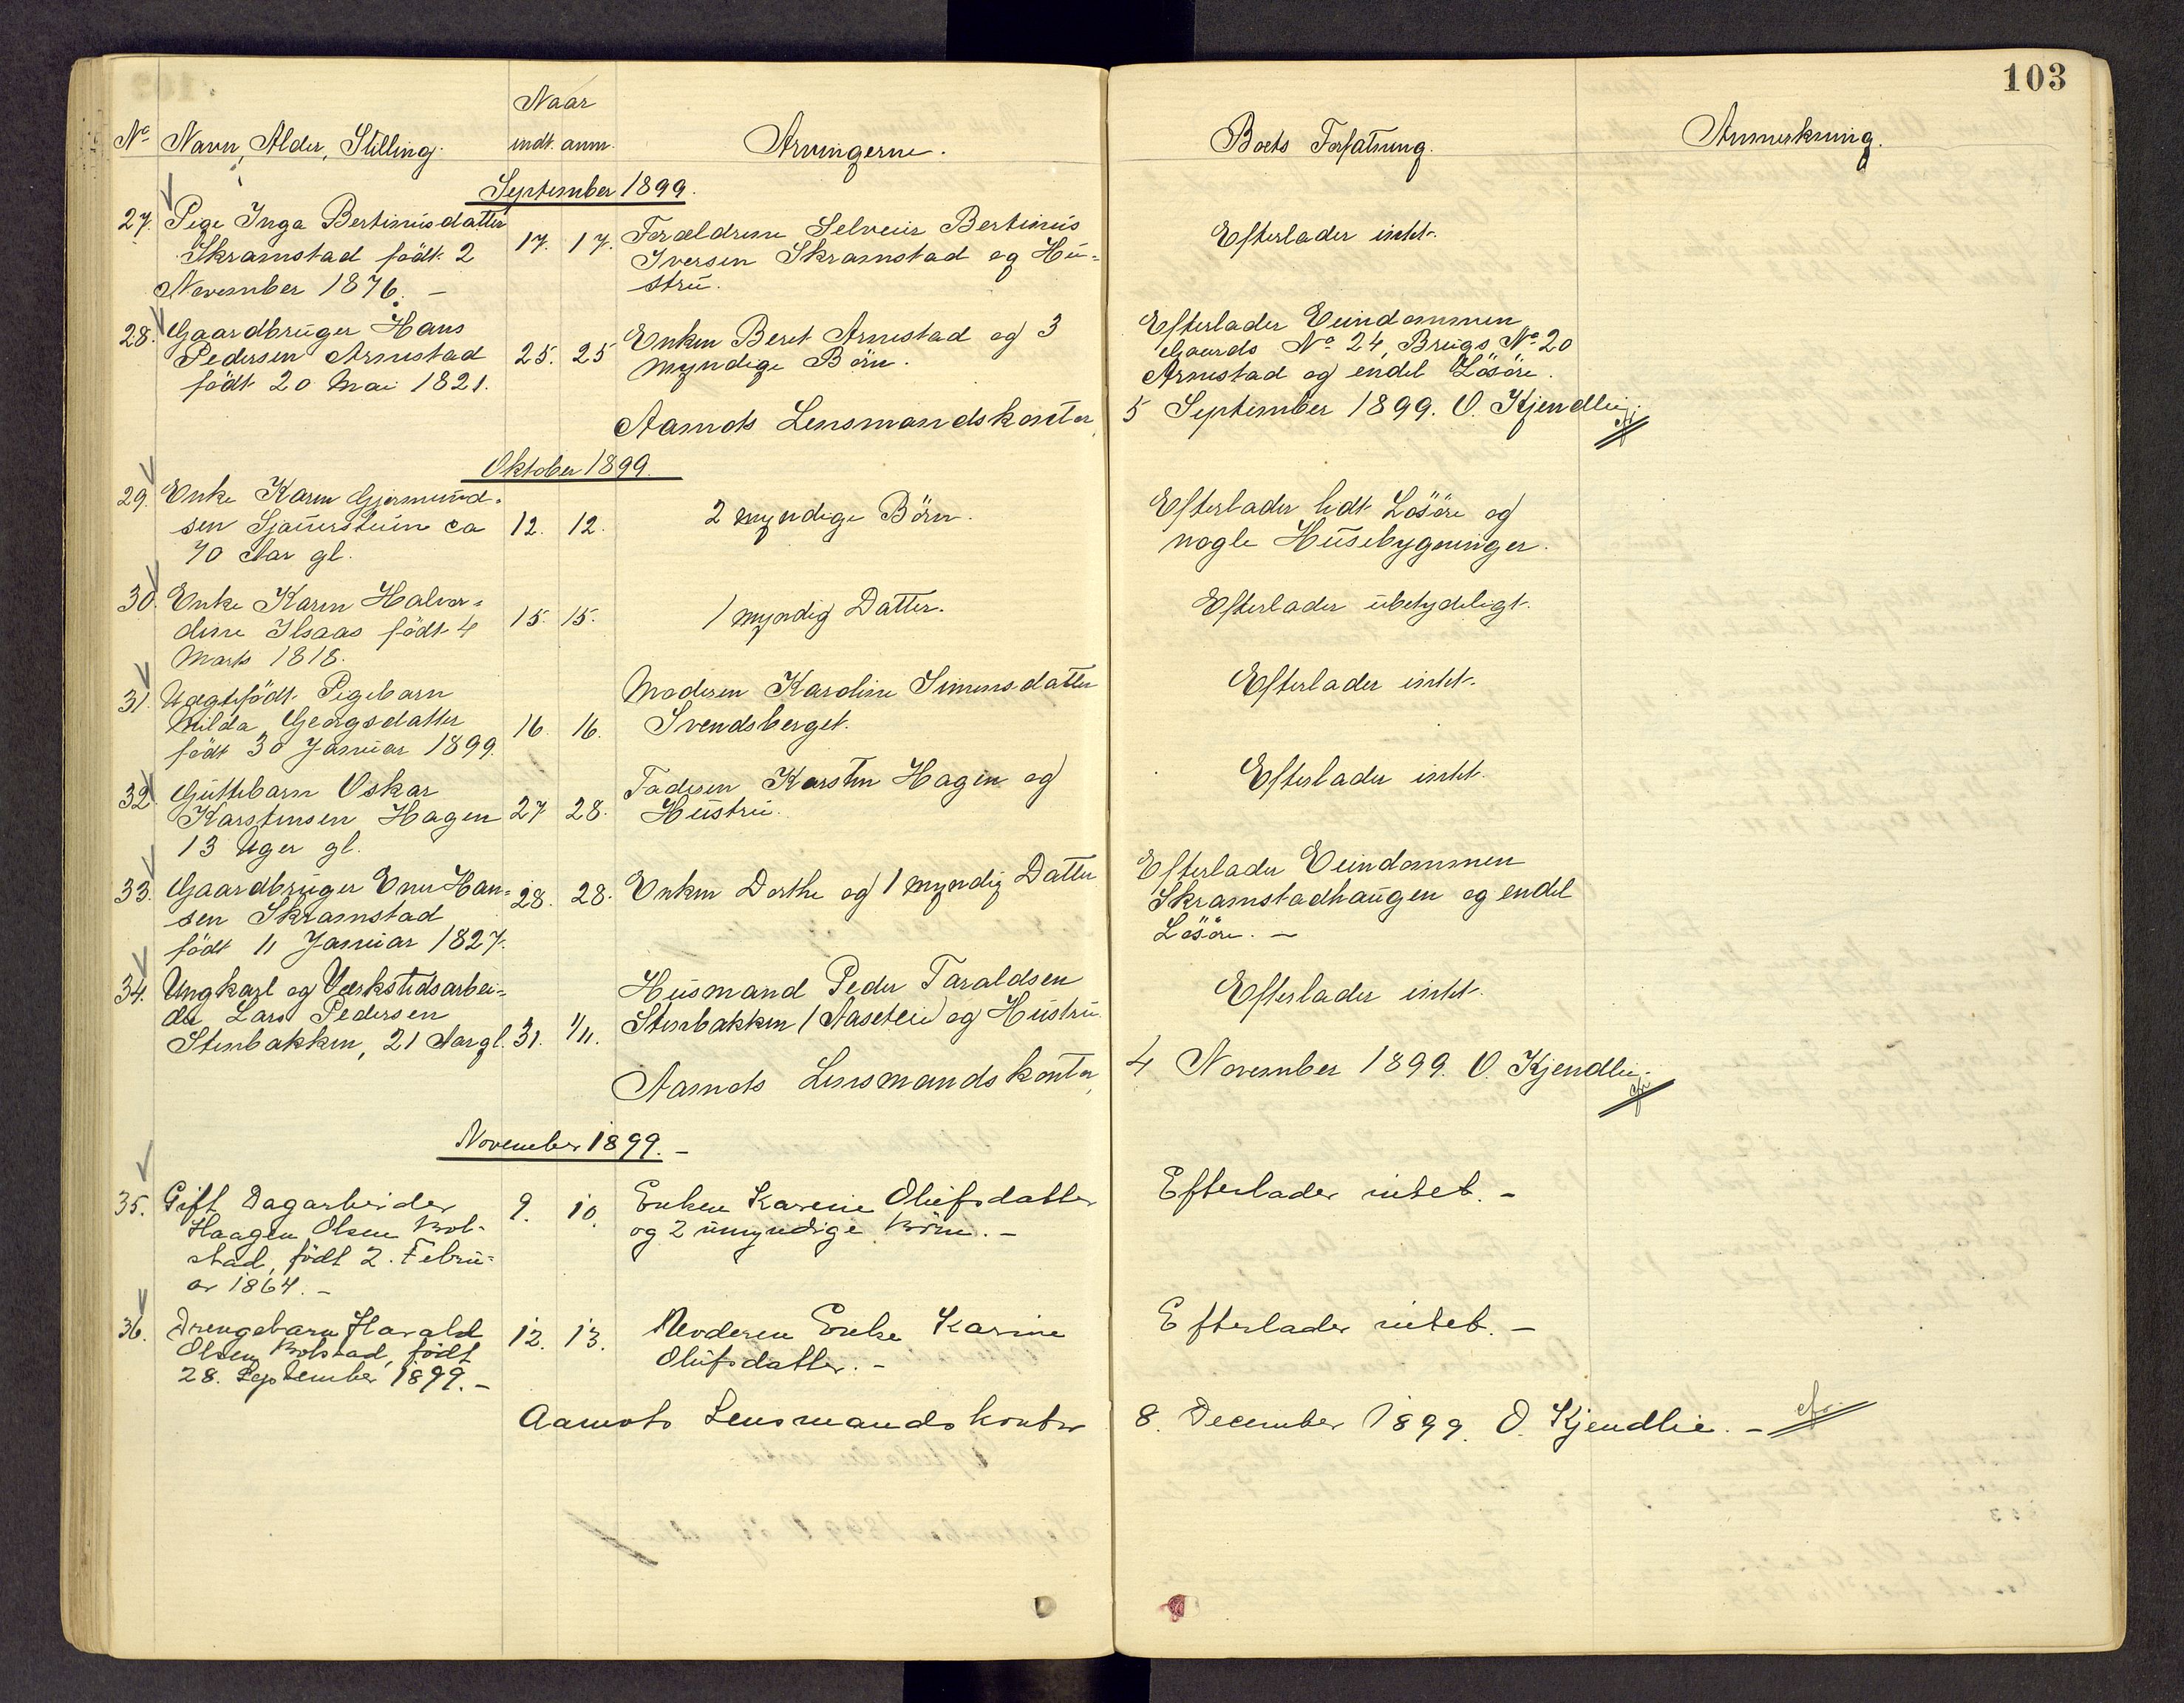 103
Naar
No Navn, Alder, Stilling. indt. anm. Arvingerne. Boets Forfatning. Anmerkning.
September 1899.
27. Pige Inga Bertinusdatter
Skramstad født 2
November 1876. –
17. 17.
Forældrene Selveier Bertinus
Iversen Skramstad og Hu-
stru.
Efterlader intet.
28. Gaardbruger Hans
Pedersen Arnestad
født 20 Mai 1821.
25. 25
Enken Beret Arnestad og 3
myndige Börn.
Efterlader Eiendommen
Gaards No 24, Brugs No 20
Arnestad og endel Lösöre.
Aamots Lensmandskontor, 5 September 1899. O. Kjendlie.
Oktober 1899.
29. Enke Karen Gjermund-
sen Sjauersteien ca
70 Aar gl.
12. 12.
2 myndige Börn.
Efterlader lidt Lösöre og
nogle Husebygninger.
30. Enke Karen Halvor-
dine Ilsaas født 4
Marts 1818.
15. 15.
1 myndig Datter.
Efterlader ubetydeligt.
31. Uægtefödt Pigebarn
Milda Georgsdatter
født 30 Januar 1899.
16. 16.
Moderen Karoline Simensdatter
Svendsberget.
Efterlader intet.
32. Guttebarn Oskar
Karstensen Hagen
13 Uger gl.
27 28.
Faderen Karsten Hagen og
Hustru.
Efterlader intet.
33. Gaardbruger Ener Han-
sen Skramstad
født 11 Januar 1827.
28. 28.
Enken Dorthe og 1 myndig Datter
Efterlader Eiendommen
Skramstadhaugen og endel
Lösöre. –
34. Ungkarl og Værkstedsarbei-
der Lars Pedersen
Stenbakken, 21 Aar gl.
31. 1/11.
Husmand Peder Taraldsen
Stenbakken (Aasetlie) og Hustru.
Efterlader intet.
Aamots Lensmandskontor, 4 November 1899. O. Kjendlie.
November 1899. –
35. Gift Dagarbeider
Haagen Olsen Bol-
stad, født 2. Febru-
ar 1864. –
9. 10.
Enken Karine Olufsdatter
og 2 umyndige Börn. –
Efterlader intet. –
36. Drengebarn Harald
Olsen Bolstad, født
28. September 1899. –
12. 13.
Moderen Enke Karine
Olufsdatter. –
Efterlader intet. –
Aamots Lensmandskontor 8. December 1899. O. Kjendlie. –